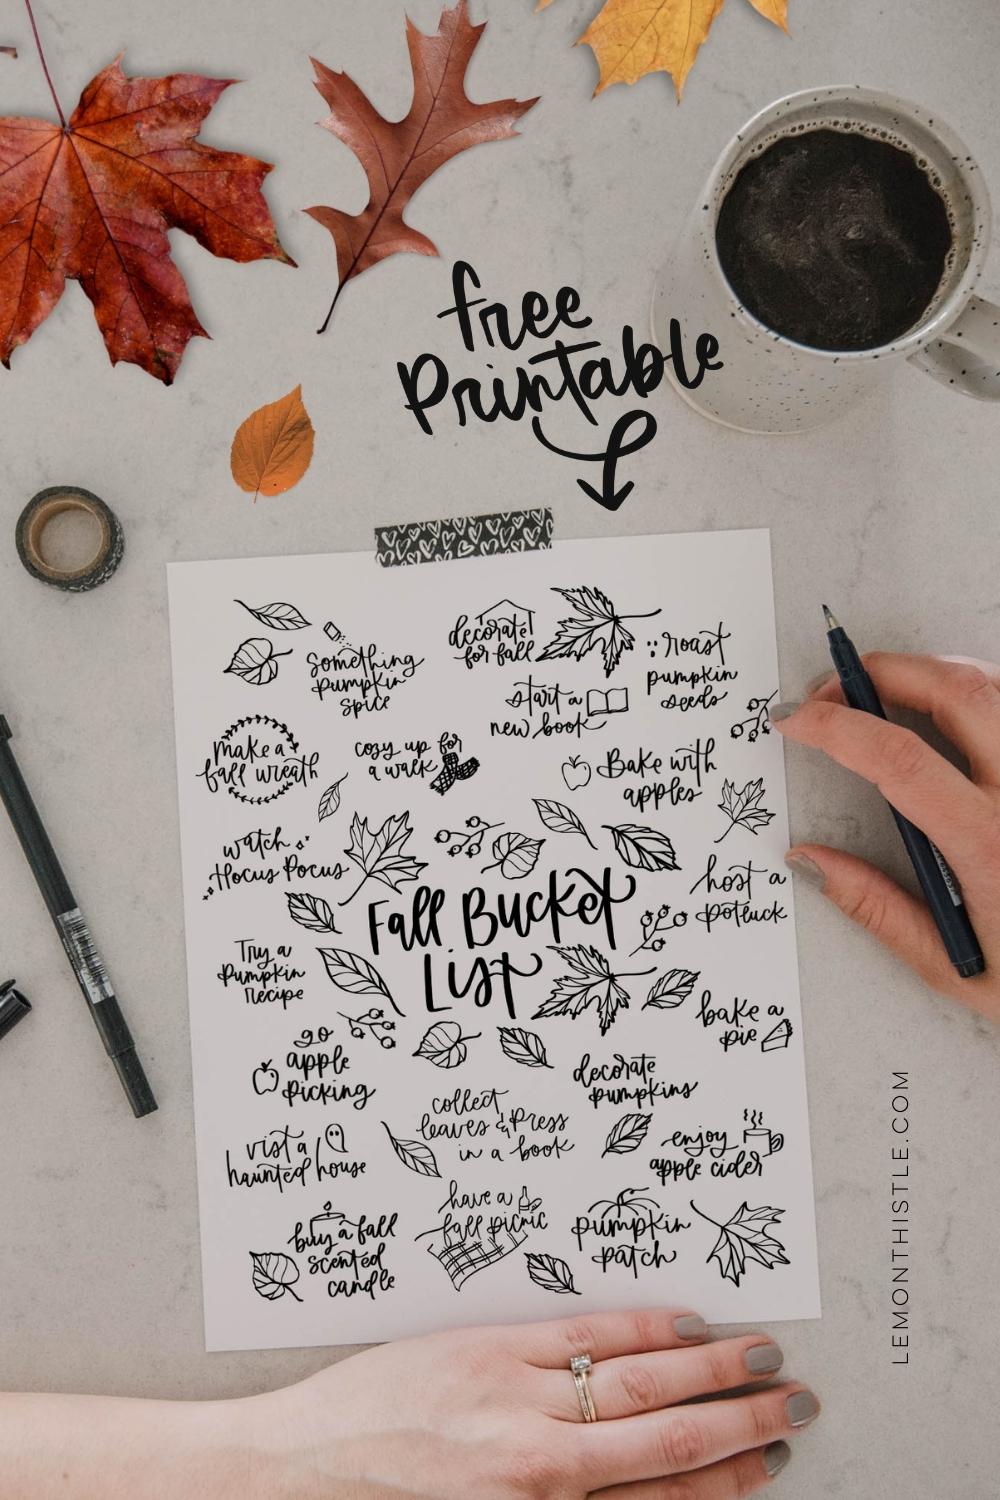 free
Printable
Something
Pumpkin
Spice
decorate
for fall
roast
pumpkin
seeds
start a
new book
make a
fall wreath
cozy up for
a walk
Bake with
apples
watch
Hocus Pocus
host a
potluck
Fall Bucket
List
Try a
Pumpkin
recipe
bake a
pie
go
apple
picking
decorate
pumpkins
collect
leaves & Press
in a book
vist a
haunted house
enjoy
apple cider
have a
fall picnic
buy a fall
scented
candle
pumpkin
patch
LEMONTHISTLE.COM